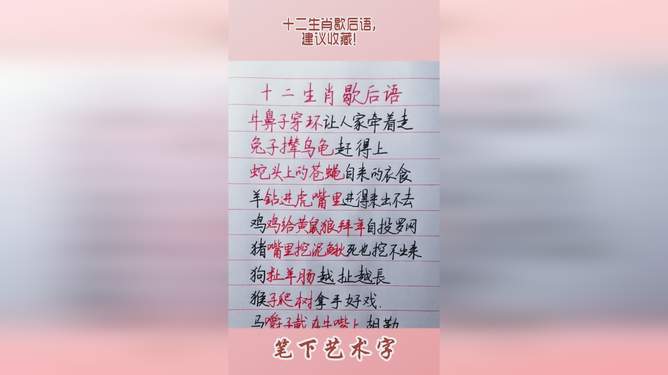 十二生肖歇后语,
建议收藏!
十二生肖歇后语
牛鼻子穿环让人家牵着走
兔子撵乌龟赶得上
蛇头上的苍蝇自来的衣食
羊钻进虎嘴里进得来出不去
鸡鸡给黄鼠狼拜年自投罗网
猪嘴里挖泥鳅死也挖不出来
狗扯羊肠越扯越長
猴子爬树拿手好戏.
马嚼子戴在牛嘴上胡勒
笔下艺术字